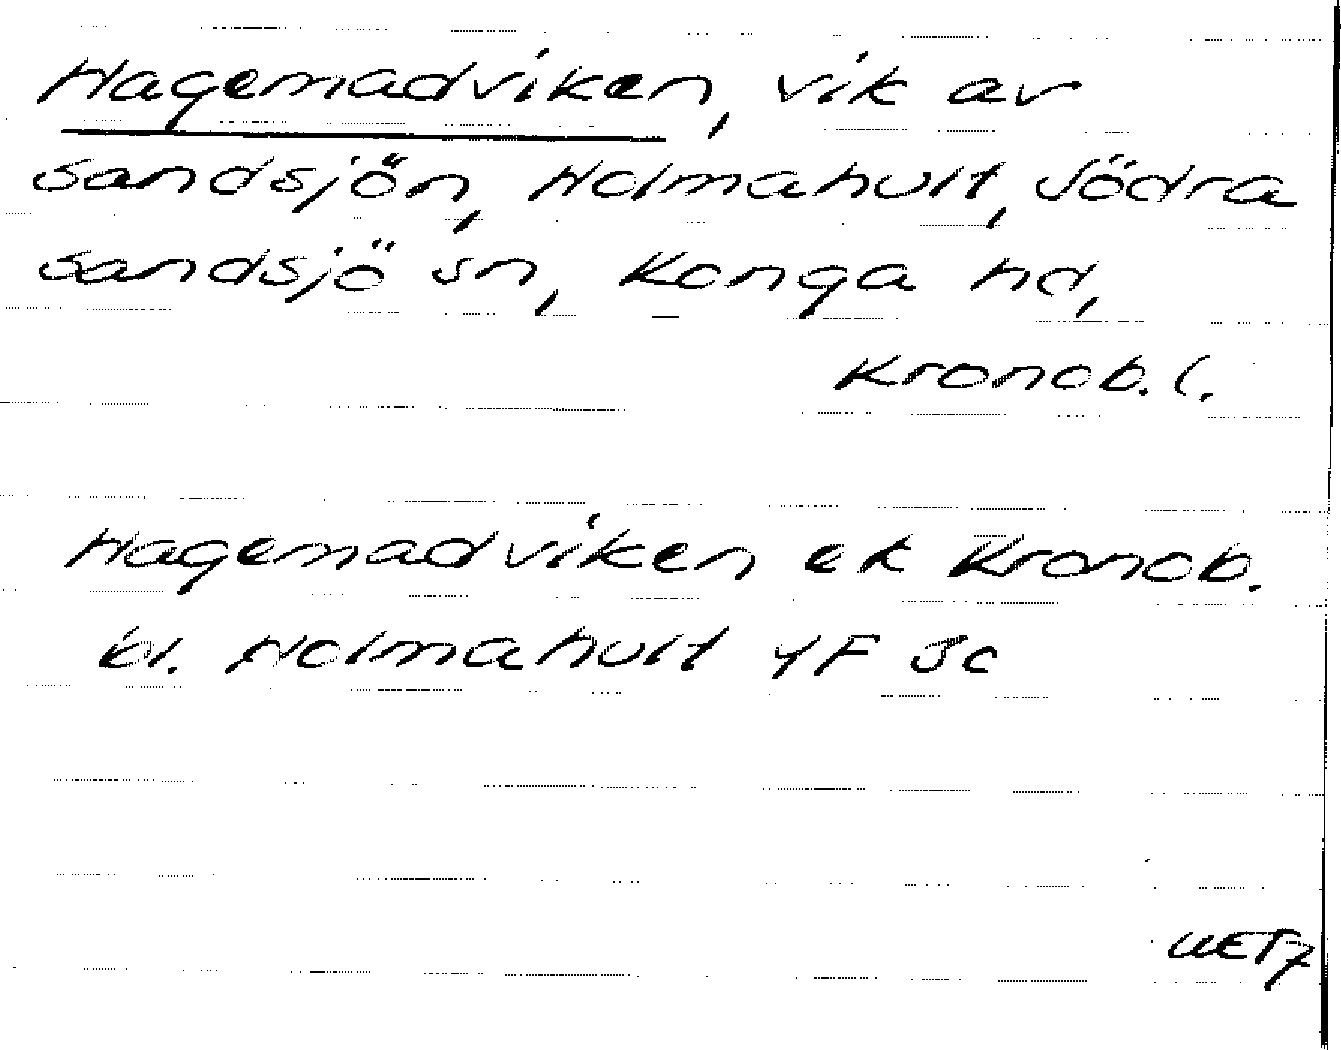 Hagemadviken, vik av
Sandsjön, Holmahult, Södra
Sandsjö sn, Konga hd,
Kronob. l.
Hagemadviken ek Kronob.
bl. Holmahult 4F 3c